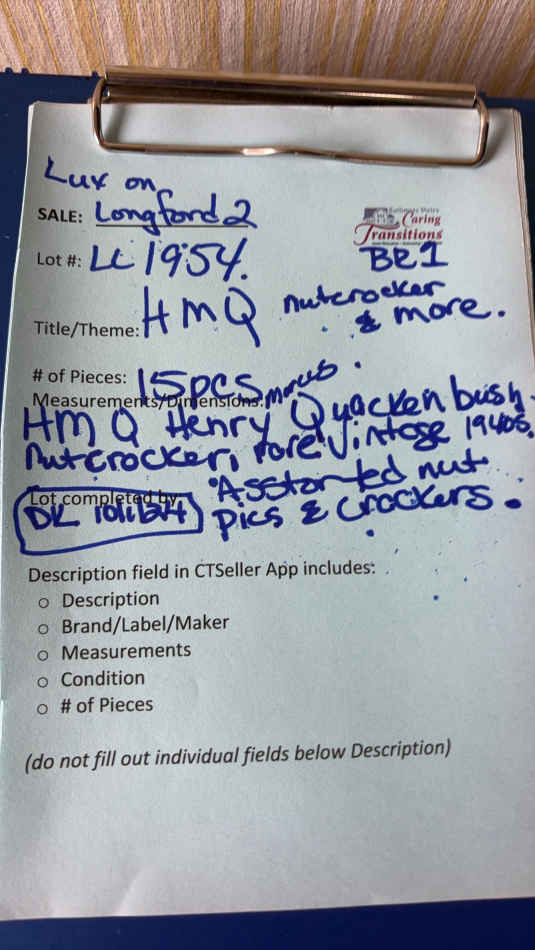 Lux on
SALE: Longford 2
Baltimore Metro
Caring
Transitions
Lot #: LC 1954.
BR1
Title/Theme: HMQ nutcrocker
& more.
# of Pieces: 15pcs
Measurements/Dimensions:
HMQ Henry Quackenbush
nutcrocker, rare Vintage 1940s.
Lot completed by
Asstorted nut
DK
pics & crockers.
Description field in CTSeller App includes:
o Description
o Brand/Label/Maker
o Measurements
o Condition
o # of Pieces
(do not fill out individual fields below Description)